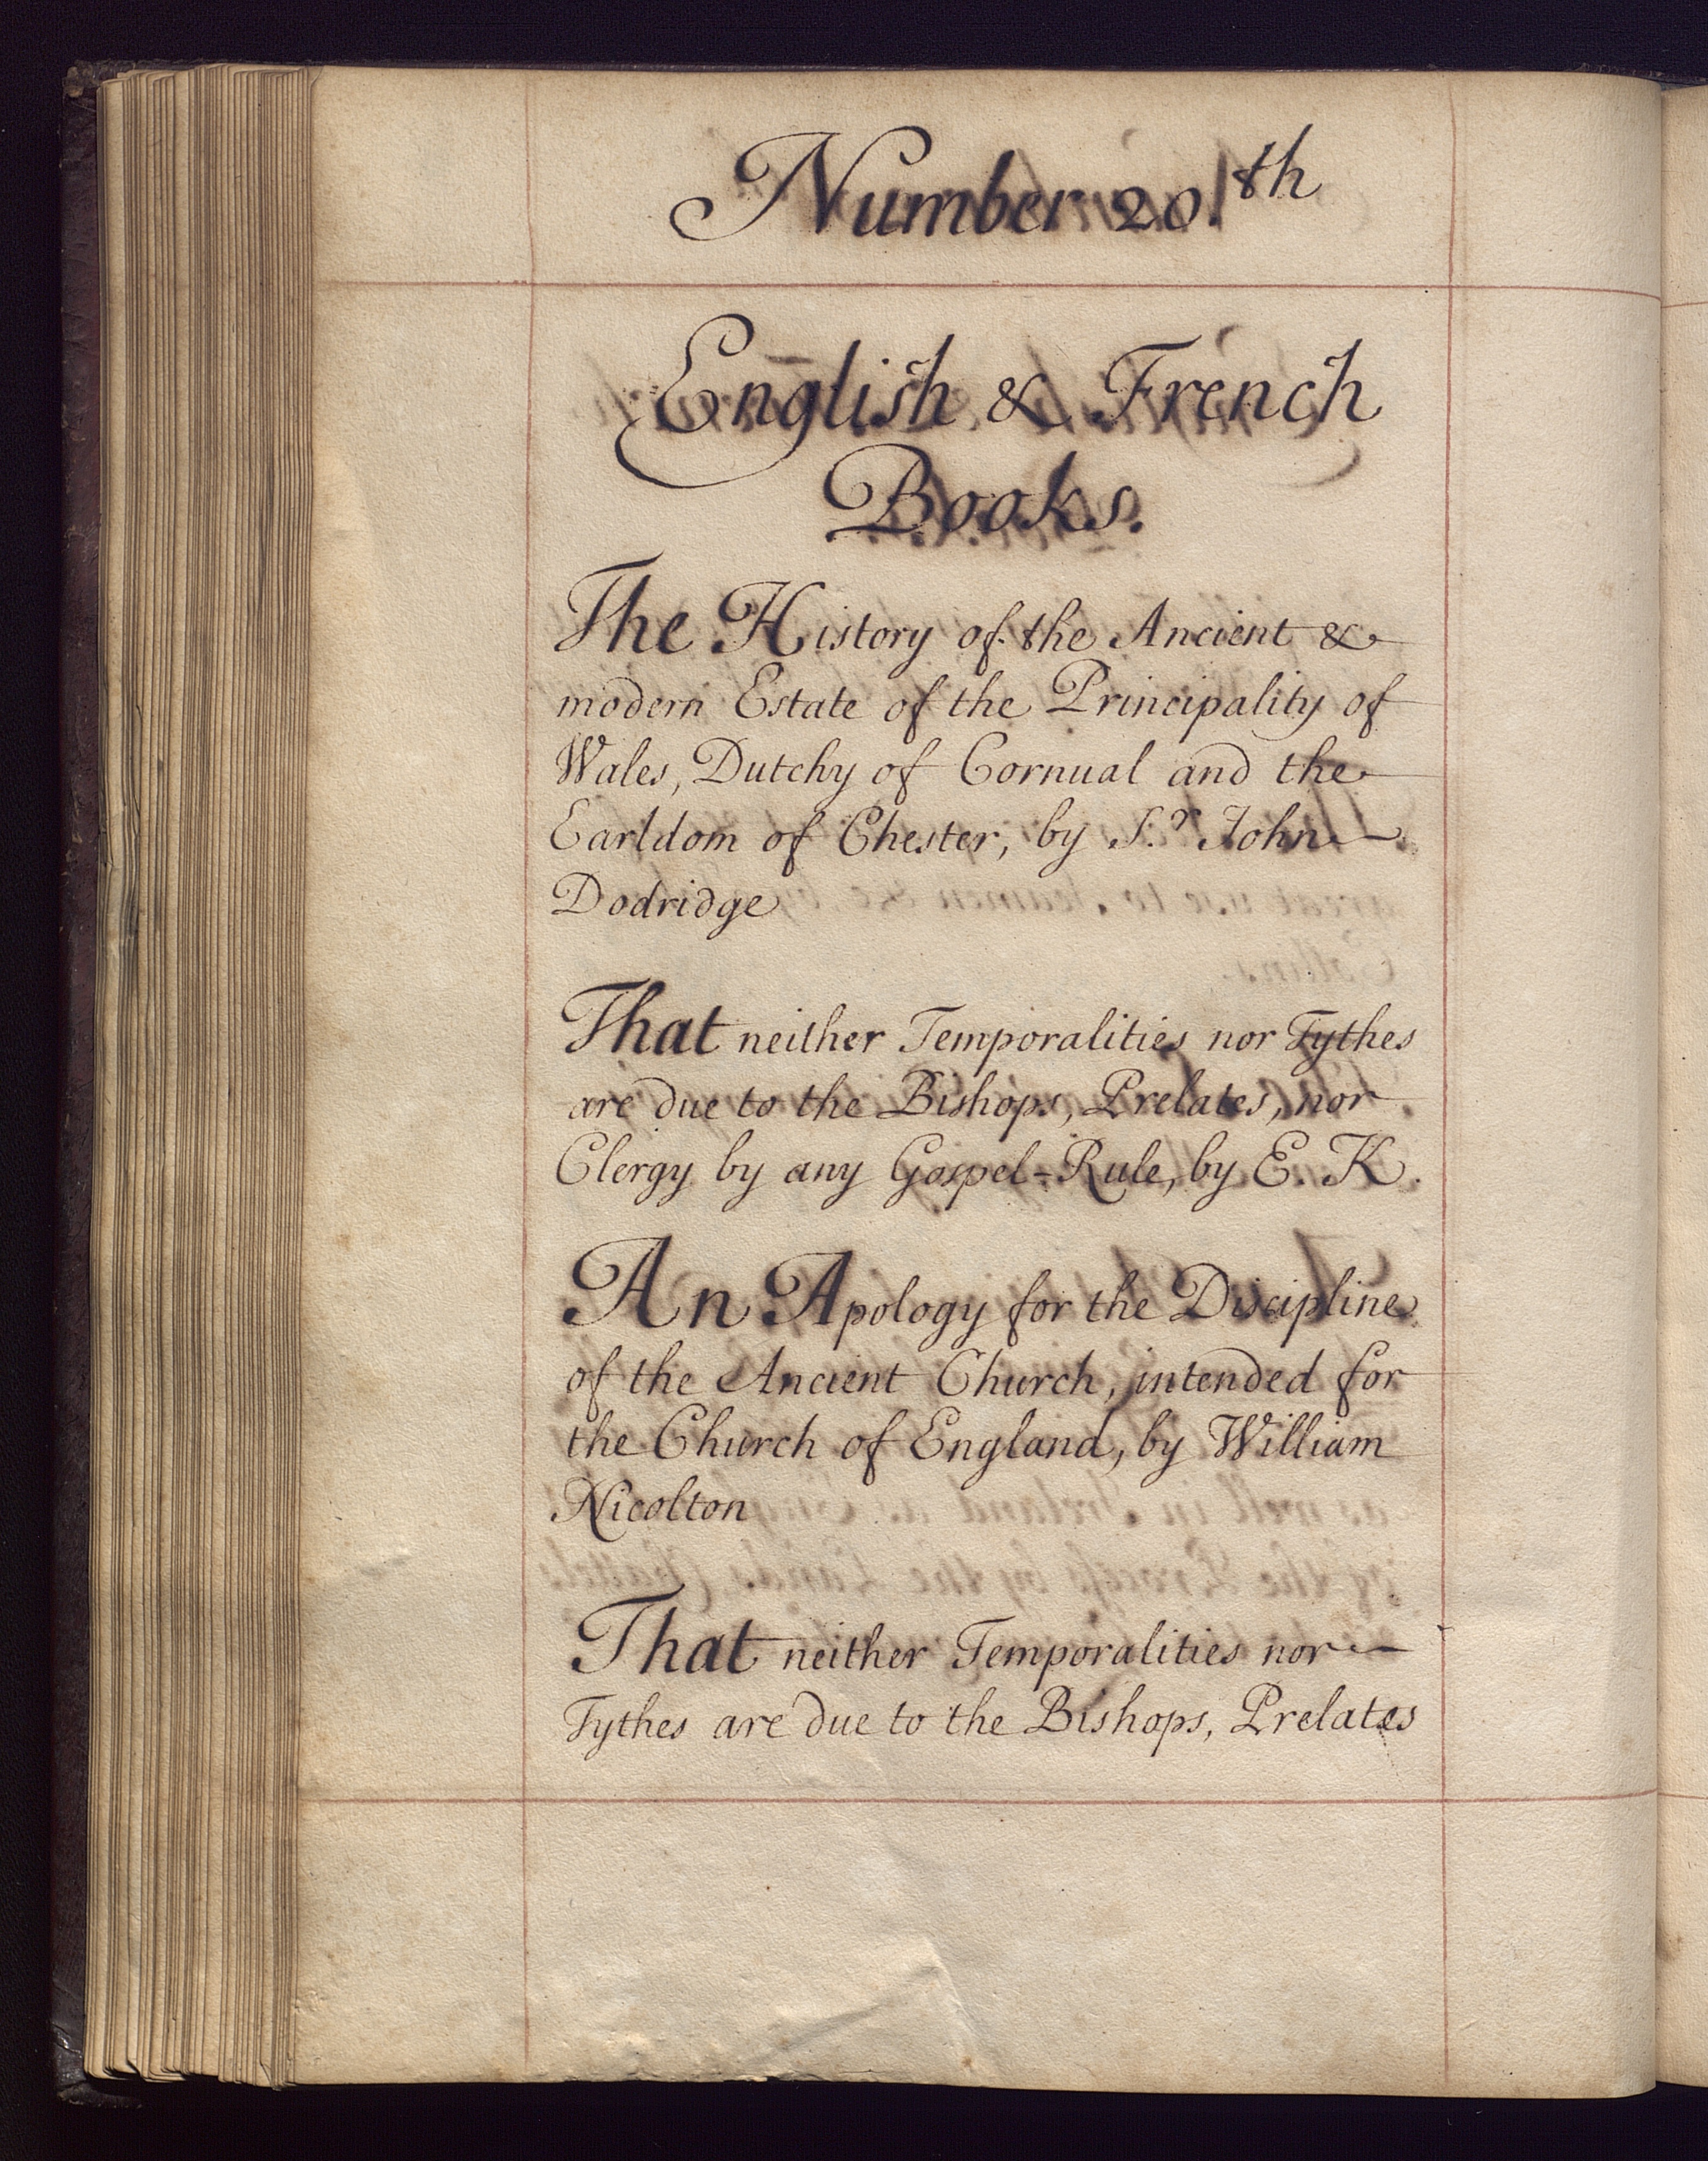 Number 20.th
English & French
Books.
The History of the Ancient &
modern Estate of the Principality of
Wales, Dutchy of Cornual and the
Earldom of Chester, by S.r John
Dodridge
That neither Temporalities nor Tythes
are due to the Bishops, Prelates, nor
Clergy by any Gospel-Rule, by E. K.
An Apology for the Discipline
of the Ancient Church, intended for
the Church of England, by William
Nicolton
That neither Temporalities nor
Tythes are due to the Bishops, Prelates